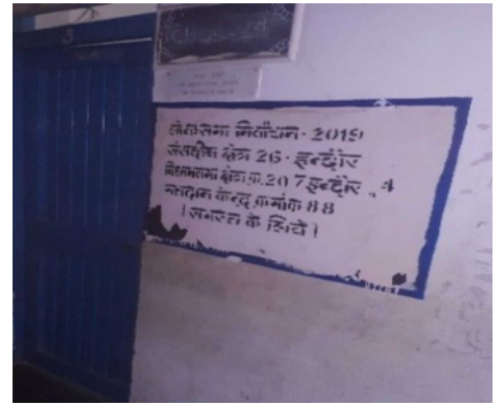 लोकसभा निर्वाचन - 2019
संसदीय क्षेत्र 26 - इन्दौर
विधानसभा क्षेत्र क्र. 207 इन्दौर - 4
मतदान केन्द्र क्रमांक 88
( समस्त के लिये )